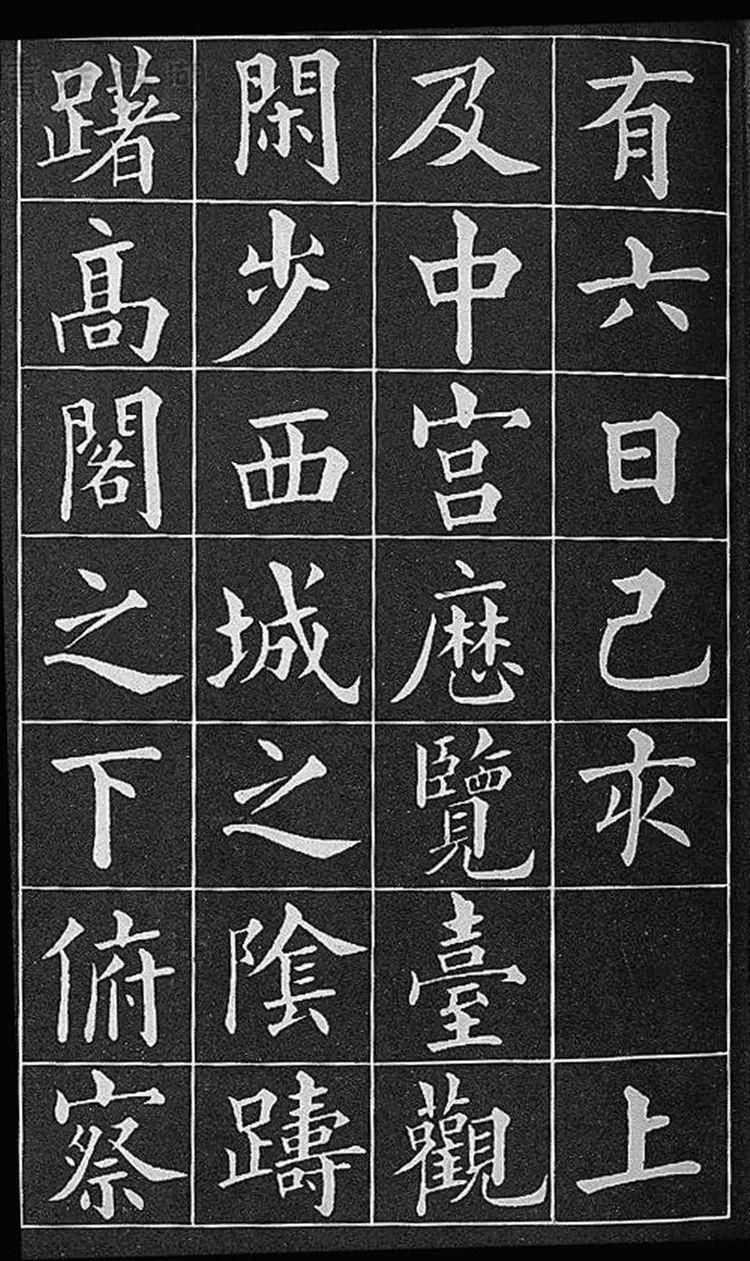 有六日己亥 上
及中宮歷覽臺觀
閑步西城之陰躊
躇高閣之下俯察